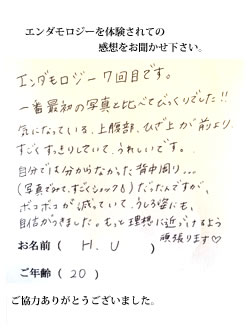 エンダモロジーを体験されての
感想をお聞かせ下さい。
エンダモロジー 7回目です。
一番最初の写真と比べてびっくりでした!!
気になっている、上腹部、ひざ上が前より、
すごくすっきりしていて、うれしいです。
自分では分からなかった背中周り…
(写真でみて、すごくショック)だったんですが、
ボコボコが減っていて、うしろ姿にも、
自信がつきました。もっと理想に近づけるよう
頑張ります♡
お名前( H. U )
ご年齢( 20 )
ご協力ありがとうございました。